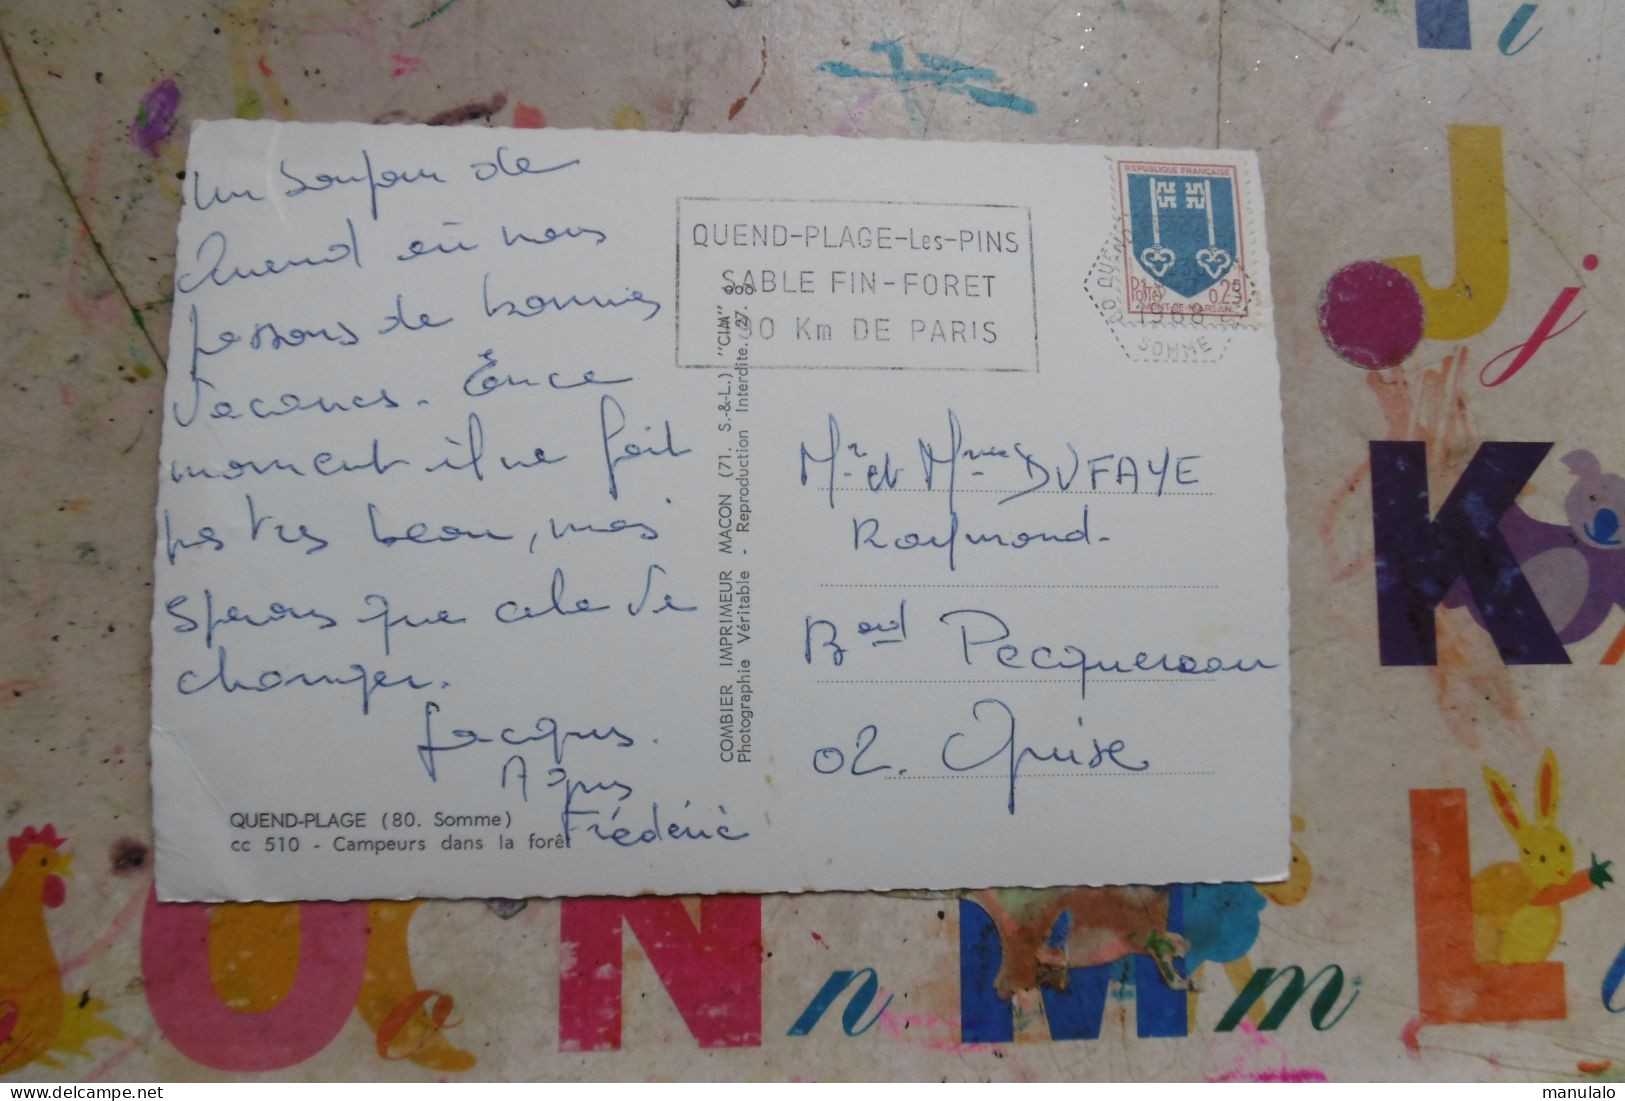 un bonjour de
Quend où nous
passons de bonnes
vacances. En ce
moment il ne fait
pas très beau, mais
esperons que cela va
changer.
Jacques.
Agnes
Frédéric
QUEND-PLAGE (80. Somme)
cc 510 - Campeurs dans la forêt
COMBIER IMPRIMEUR MACON (71. S.-&-L.) "CIM"
Photographie Véritable - Reproduction Interdite.
QUEND-PLAGE-Les-PINS
SABLE FIN-FORET
Km DE PARIS
REPUBLIQUE FRANÇAISE
POSTES
0,25
MONT-DE-MARSAN
80 QUEND
SOMME
Mr et Mme DUFAYE
Raymond.
Bard Pecquereau
02. Guise
i
J j
K
L
M m
N n
O o
manulalo